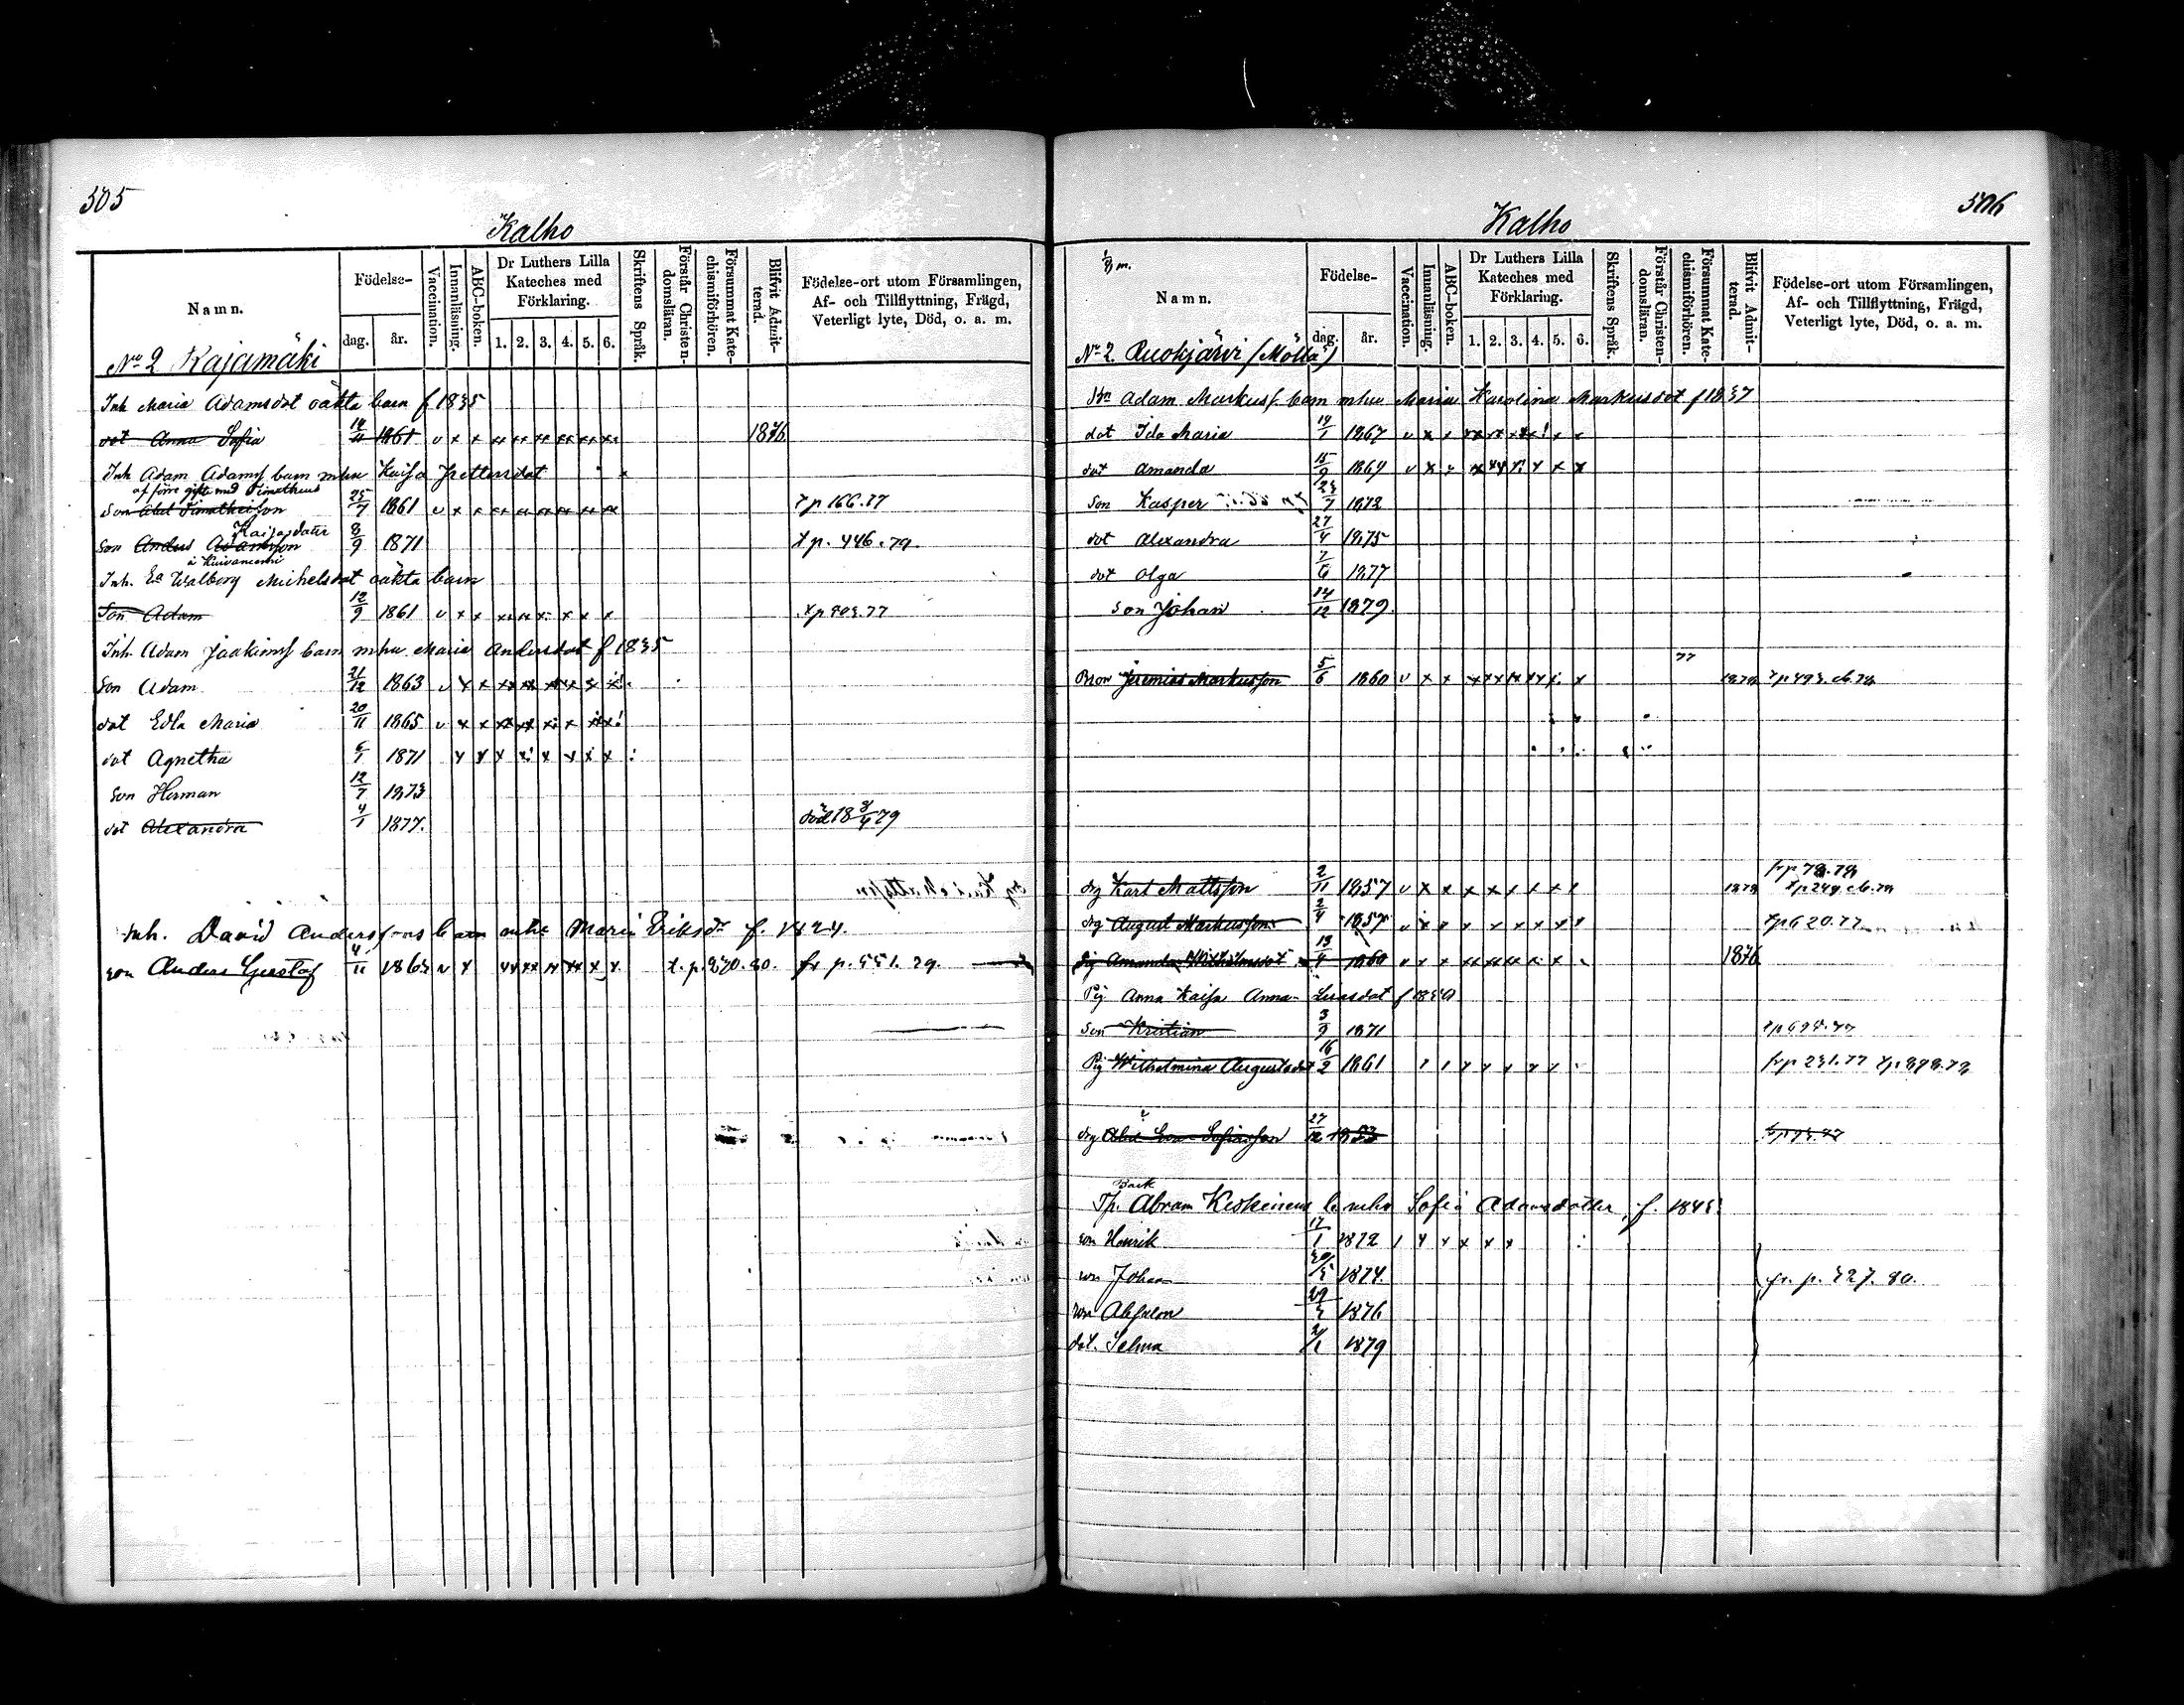 505
Kalho
Namn.
Födelse-
dag.
år.
Vaccination.
Innanläsning.
ABC-boken.
Dr Luthers Lilla Kateches med Förklaring.
1. 2. 3. 4. 5. 6.
Skriftens Språk.
Förstår Christen-domsläran.
Försummat Kate-chismiförhören.
Blifvit Admit-terad.
Födelse-ort utom Församlingen,
Af- och Tillflyttning, Frägd,
Veterligt lyte, Död, o. a. m.
No 2 Kajamäki
Inh Maria Adamsdot oäkta barn f 1835
dot Anna Sofia 1861 v x x 1876
Inh Adam Adamsf barn m hu Kaisa Pettersdot
af förre gifte med Timotheus
Son Abel Timotheisson 25/7 1861 v x x tp 166.77
Kaisasdater
Son Anders Adamsson 8/9 1871 tp. 446.79.
Inh. Ea Walborg Michelsdot oäkta barn
Son Adam 12/9 1861 v x x
Inh. Adam Jaakimsf barn m hu Maria Andersdot f 1835
Son Adam 21/12 1863 v x x
dot Edla Maria 20/11 1865 v x x
dot Agnetha 6/1 1871
Son Herman 12/7 1873
dot Alexandra 4/1 1877. död 18 3/4 79
Inh. David Andersf-ns barn m hu Maria Eriksdr f. 1824.
son Anders Gustaf 4/11 1863 t. p. 270. 80. fr p. 551. 79.
506
Kalho
Namn.
Födelse-
dag.
år.
Vaccination.
Innanläsning.
ABC-boken.
Dr Luthers Lilla Kateches med Förklaring.
1. 2. 3. 4. 5. 6.
Skriftens Språk.
Förstår Christen-domsläran.
Försummat Kate-chismiförhören.
Blifvit Admit-terad.
Födelse-ort utom Församlingen,
Af- och Tillflyttning, Frägd,
Veterligt lyte, Död, o. a. m.
No 2. Ruokjärvi (Mölla)
Bn Adam Markusf. barn m hu Maria Karolina Markusdot f 1837
dot Ida Maria 19/1 1867 v x x
dot Amanda 15/9 1869 v x
Son Kasper 23/7 1872
dot Alexandra 27/4 1875
dot Olga 7/6 1877
Son Johan 14/12 1879.
77
Bror Jeremias Markusson 5/6 1860 v x x 1878
drg Karl Mattsson 2/11 1857 v x x 1878 frp 78.78
drg August Markusson 2/4 1857 tp 620.77
Pig Amanda Wilhelmsdot 13/4 1860 v x x 1876
Pig Anna Kaisa Anna-Lenasdot
Son Kristian 3/9 1871
Pig Wilhelmina Augustsdot 16/2 1861 frp 231.77
drg Abel Eva Sofiasson 27/12 1853
Back
Tp. Abram Keskinens b m hu Sofia Adamsdotter, f. 1843
son Henrik 17/1 1872
son Johan 1874. fr. p. 327. 80.
son Absalon 1876
dot. Selma 2/1 1879